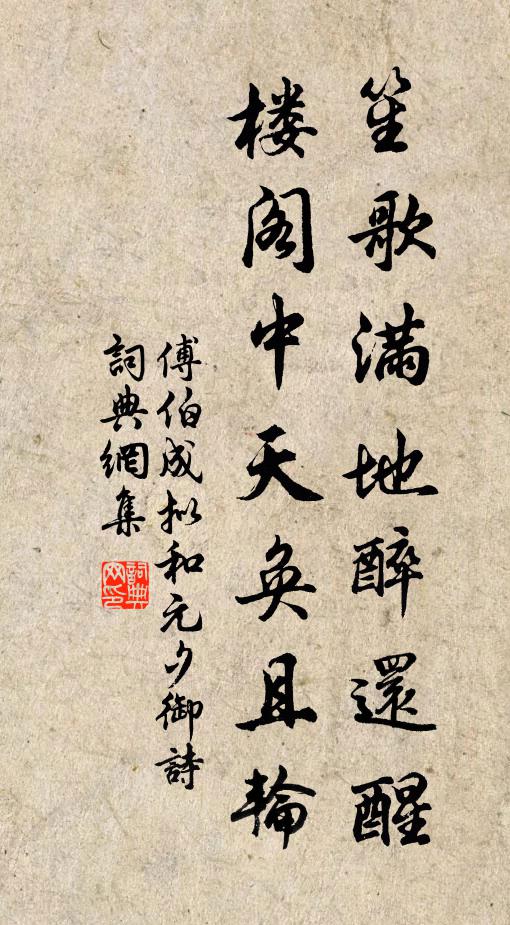 笙歌满地醉還醒
楼阁中天奂且輪
傅伯成拟和元夕御詩
詞典網集
詞典网印